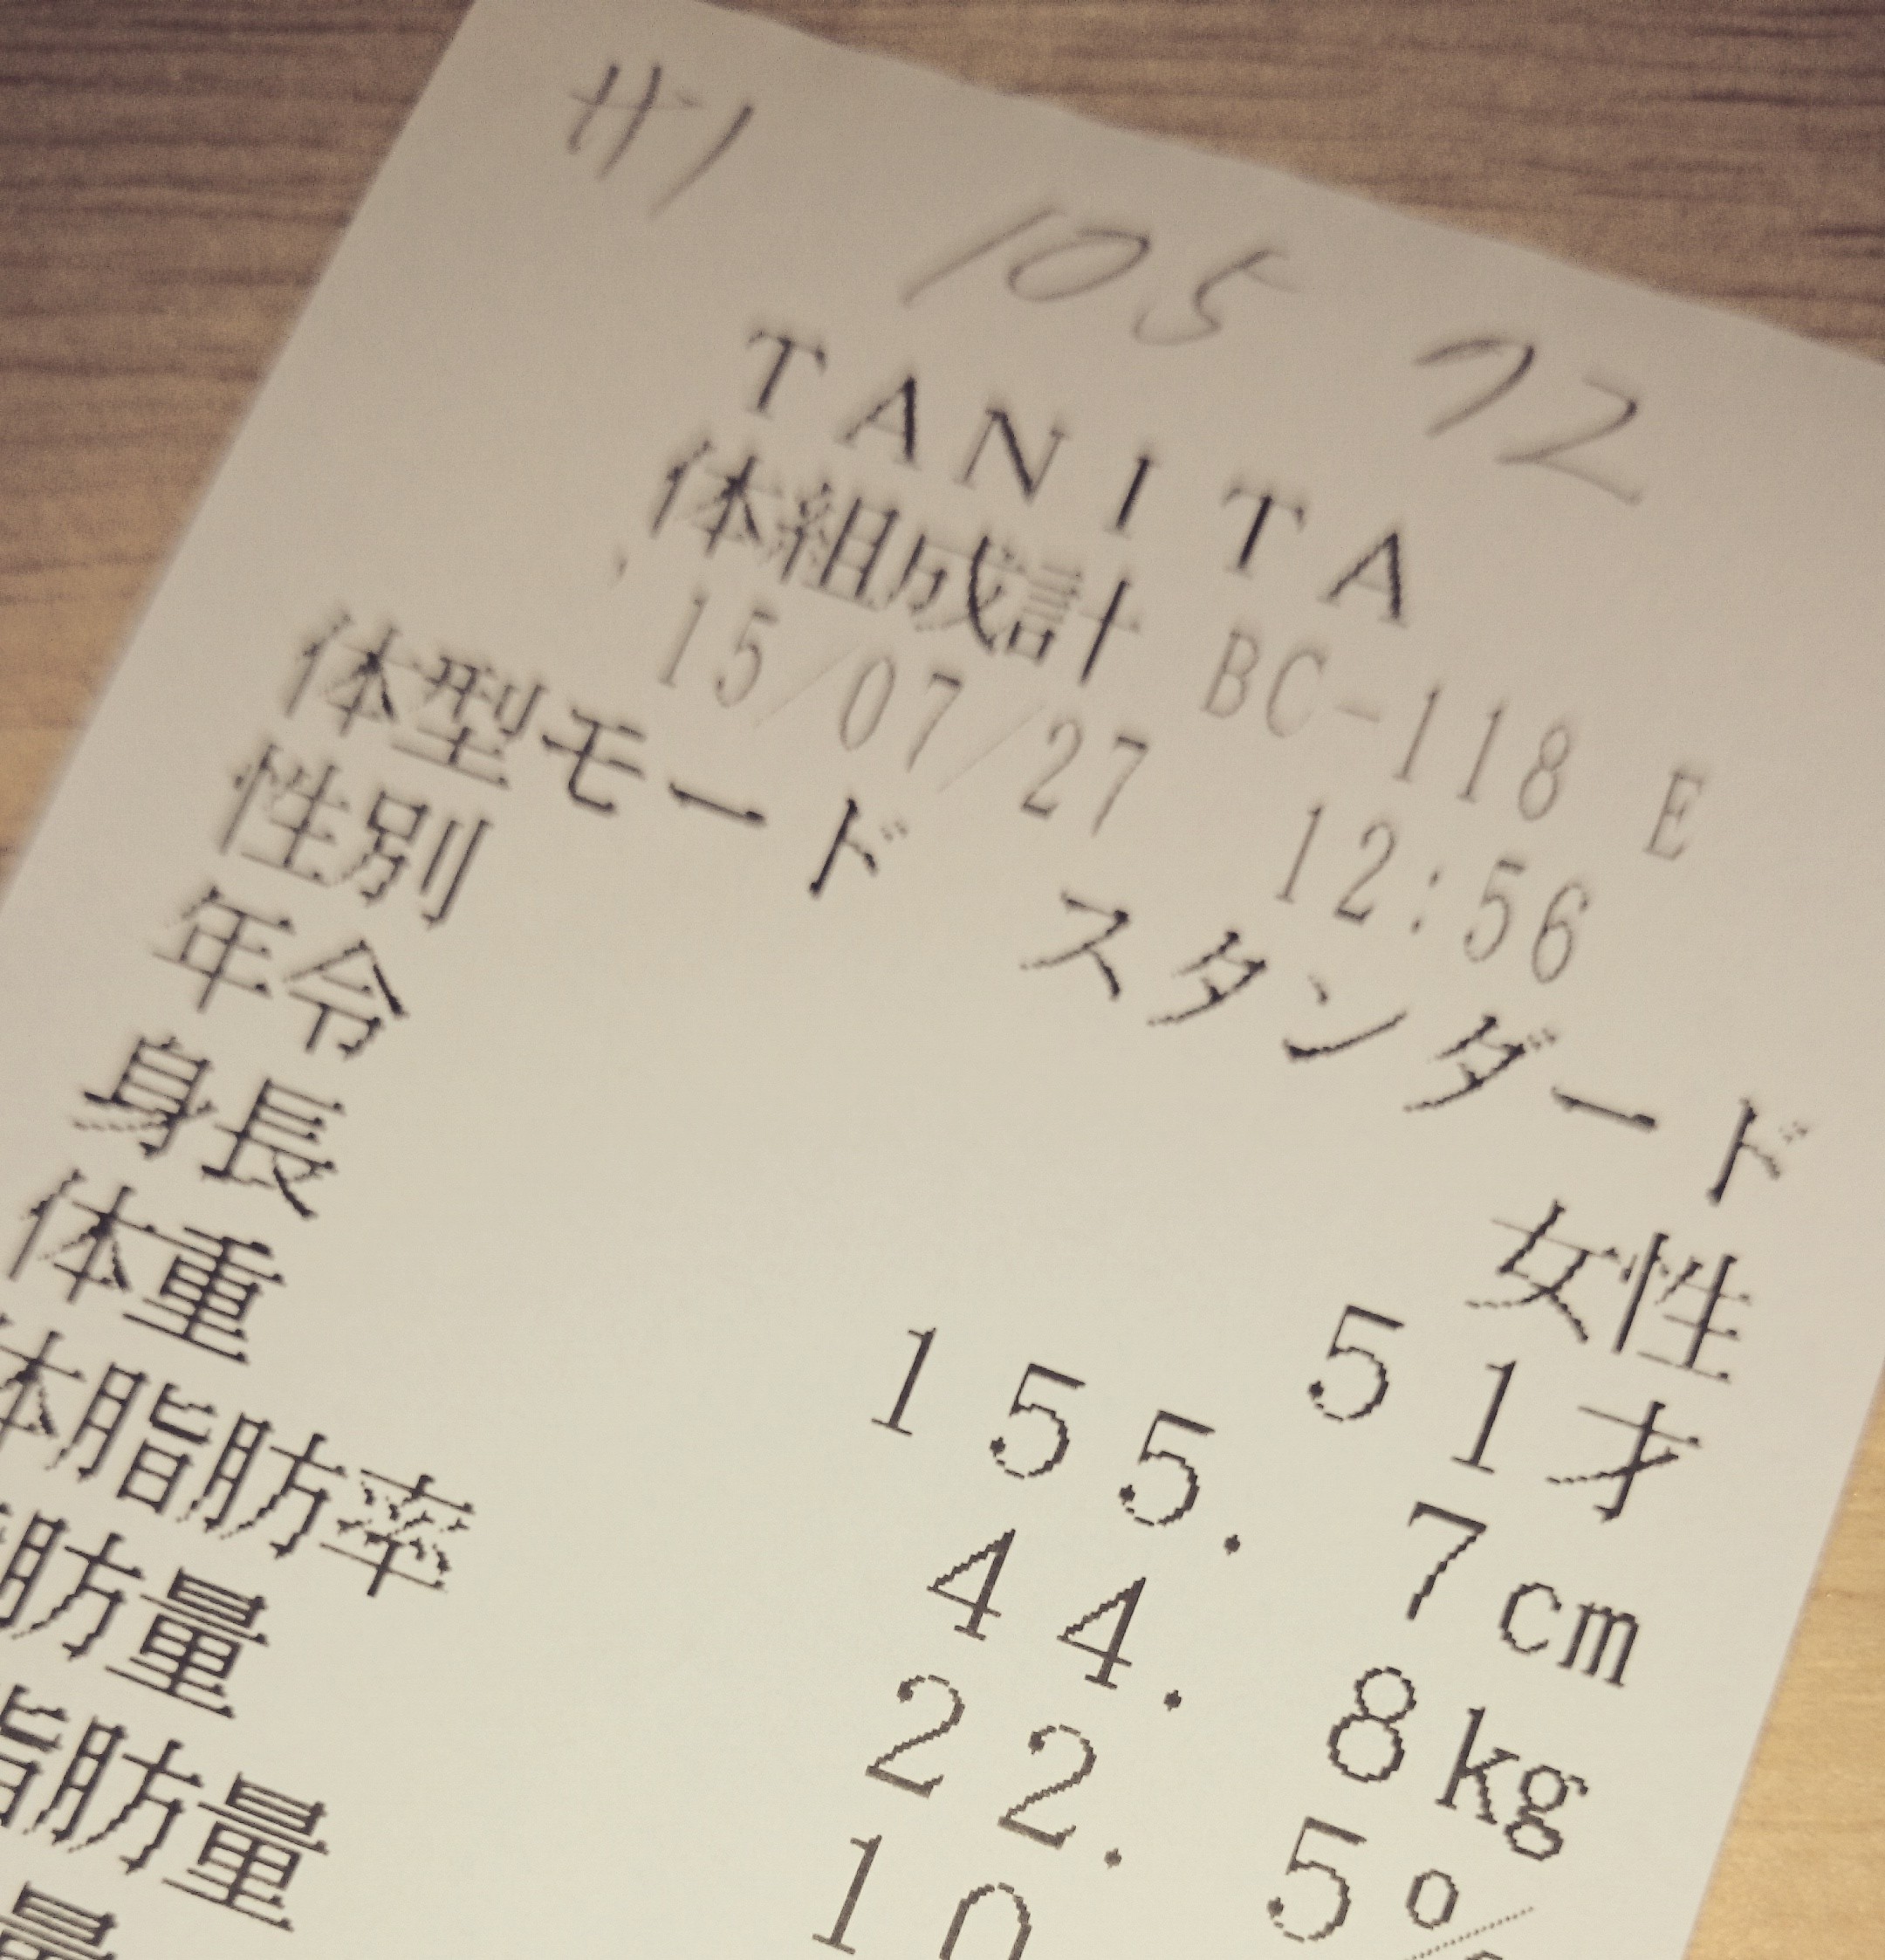 105 72
TANITA
体組成計 BC-118 E
'15/07/27 12:56
体型モード スタンダード
性別 女性
年令 51才
身長 155.7cm
体重 44.8kg
体脂肪率 22.5%
脂肪量 10
脂肪量
量